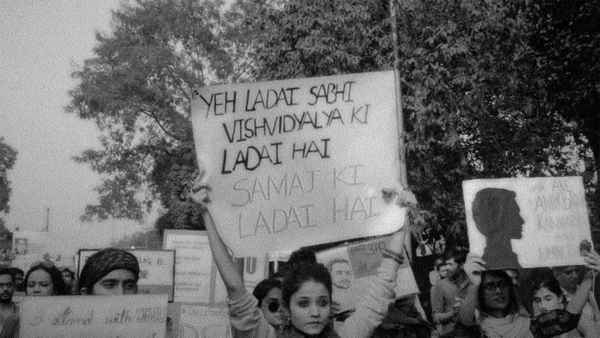 YEH LADAI SABHI
VISHVIDYALYA KI
LADAI HAI
SAMAJ KI
LADAI HAI
I stand with